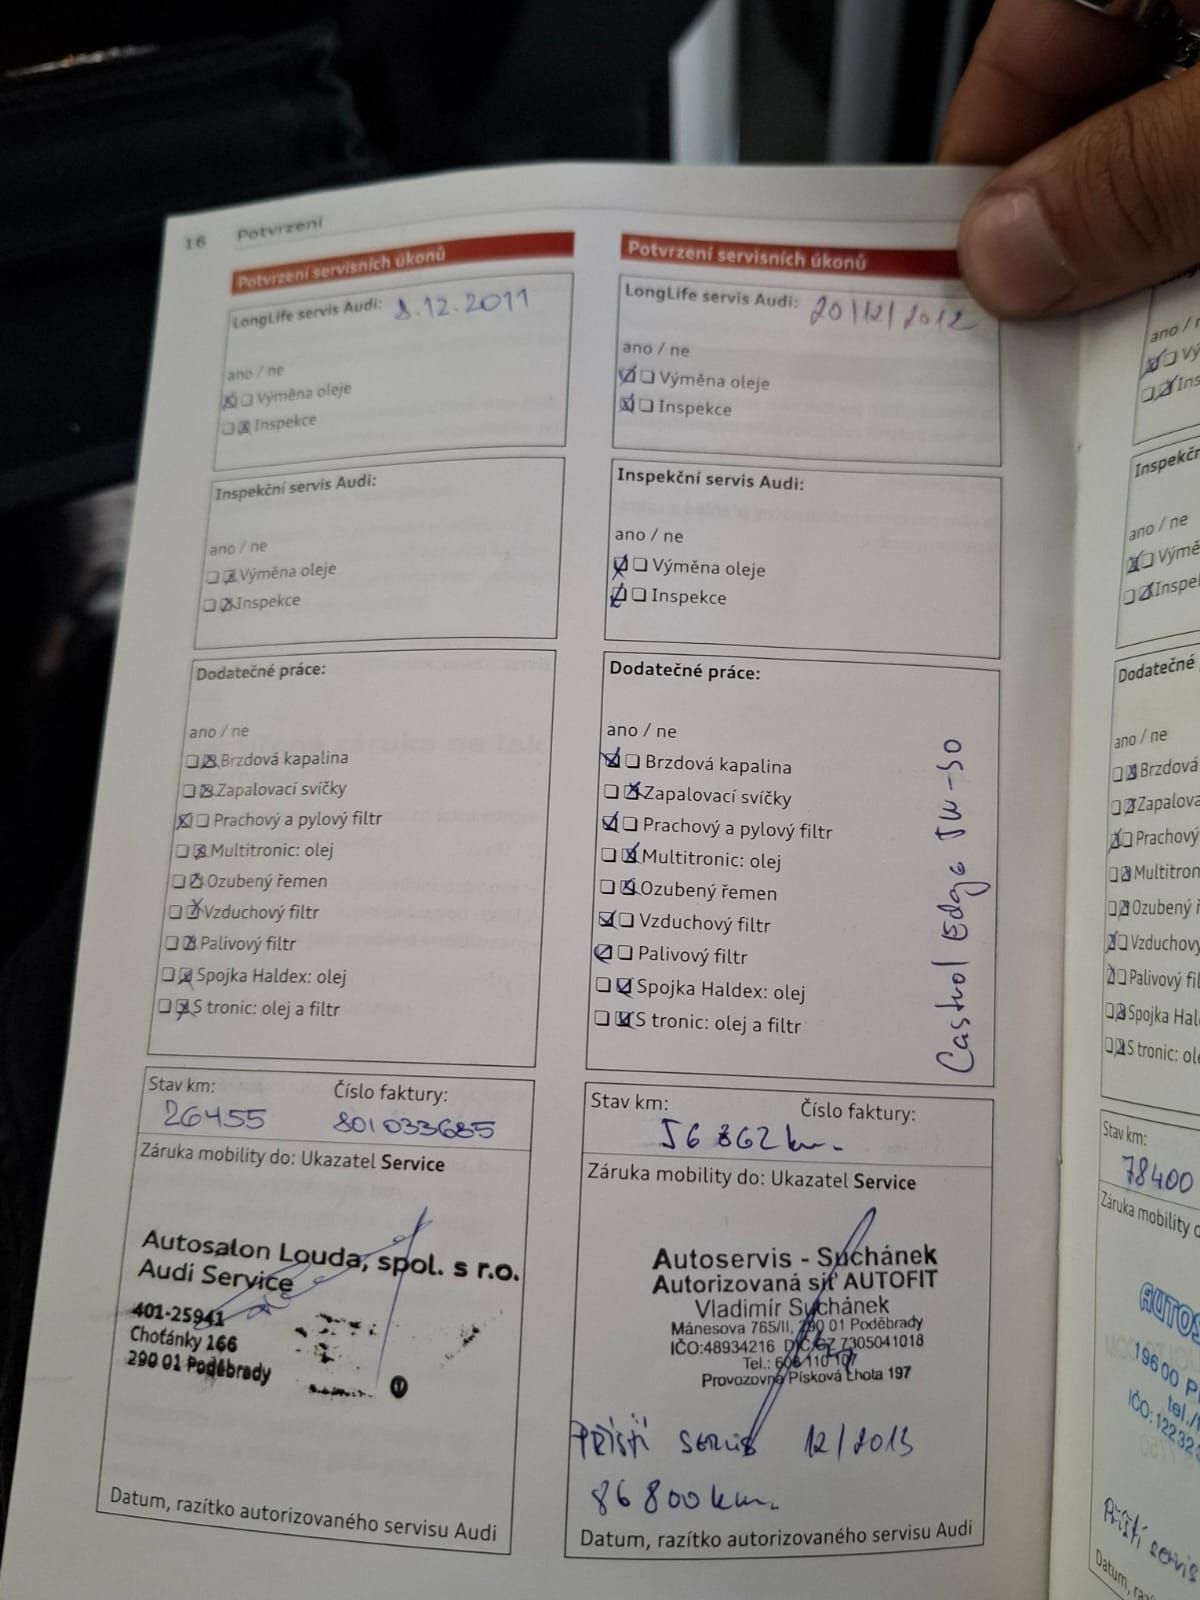 16 Potvrzení
Potvrzení servisních úkonů
LongLife servis Audi: 8.12.2011
ano / ne
Výměna oleje
Inspekce
Inspekční servis Audi:
ano / ne
Výměna oleje
Inspekce
Dodatečné práce:
ano / ne
Brzdová kapalina
Zapalovací svíčky
Prachový a pylový filtr
Multitronic: olej
Ozubený řemen
Vzduchový filtr
Palivový filtr
Spojka Haldex: olej
S tronic: olej a filtr
Stav km: Číslo faktury:
26455 801033685
Záruka mobility do: Ukazatel Service
Autosalon Louda, spol. s r.o.
Audi Service
401-25941
Choťánky 166
290 01 Poděbrady
Datum, razítko autorizovaného servisu Audi
Potvrzení servisních úkonů
LongLife servis Audi: 20/12/2012
ano / ne
Výměna oleje
Inspekce
Inspekční servis Audi:
ano / ne
Výměna oleje
Inspekce
Dodatečné práce:
ano / ne
Brzdová kapalina
Zapalovací svíčky
Prachový a pylový filtr
Multitronic: olej
Ozubený řemen
Vzduchový filtr
Palivový filtr
Spojka Haldex: olej
S tronic: olej a filtr
Castrol Edge 5W-30
Stav km: Číslo faktury:
56 862 km.
Záruka mobility do: Ukazatel Service
Autoservis - Suchánek
Autorizovaná síť AUTOFIT
Vladimír Suchánek
Mánesova 765/II, 290 01 Poděbrady
IČO:48934216 DIČ:CZ 7305041018
Tel.: 608 110 107
Provozovna Písková Lhota 197
PŘÍŠTÍ SERVIS 12/2013
86 800 km.
Datum, razítko autorizovaného servisu Audi
ano / n
Vý
Ins
Inspekčn
ano / ne
Výmě
Inspe
Dodatečné
ano / ne
Brzdová
Zapalova
Prachový
Multitron
Ozubený ř
Vzduchov
Palivový fil
Spojka Hal
S tronic: ole
Stav km:
78400
Záruka mobility d
AUTOS
19600 P
tel./
IČO: 12232
Příští servis
Datum, raz